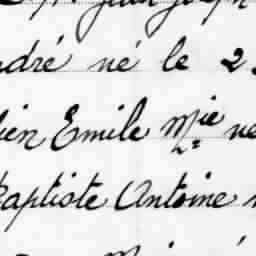 Jean Joseph
ndré né le 2
ien Emile Mie né
Baptiste Antoine